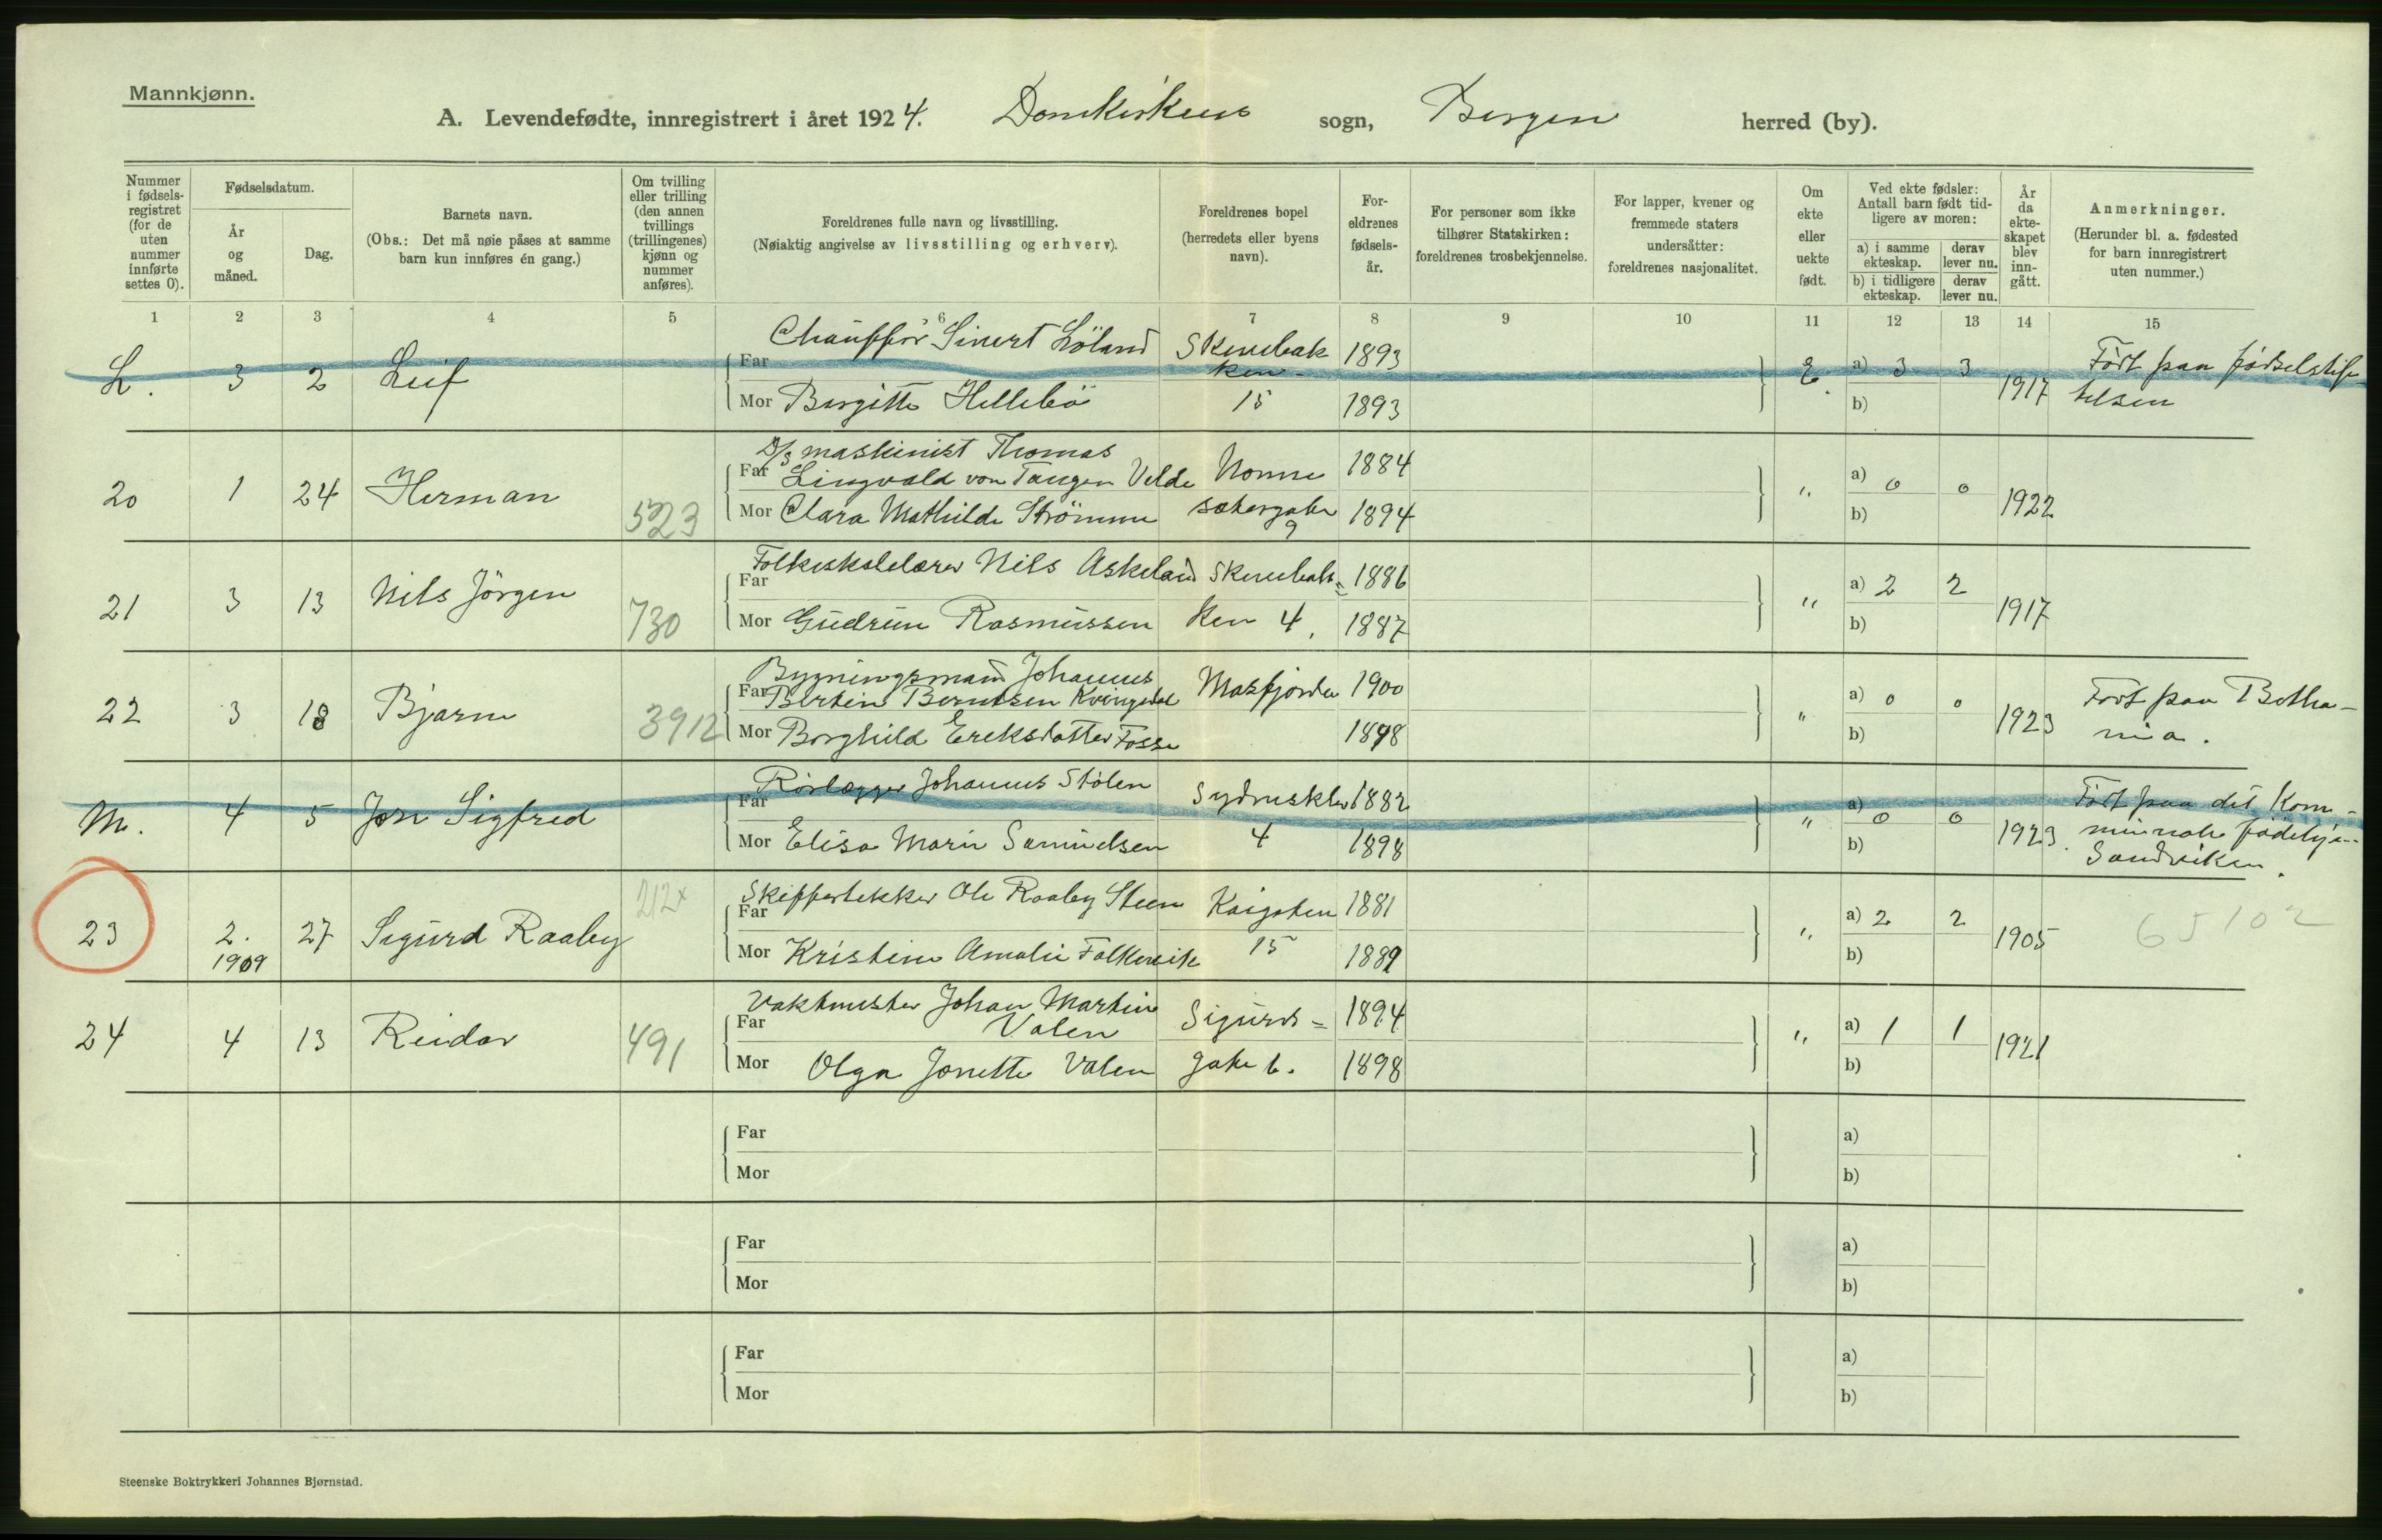 Mannkjønn.
A. Levendefødte, innregistrert i året 1924. Domkirkens sogn, Bergen herred (by).
Nummer i fødsels-registret (for de uten nummer innførte settes 0).
Fødselsdatum.
År og måned.
Dag.
Barnets navn.
(Obs.: Det må nøie påses at samme barn kun innføres én gang.)
Om tvilling eller trilling (den annen tvillings (trillingenes) kjønn og nummer anføres).
Foreldrenes fulle navn og livsstilling.
(Nøiaktig angivelse av livsstilling og erhverv).
Foreldrenes bopel (herredets eller byens navn).
For-eldrenes fødsels-år.
For personer som ikke tilhører Statskirken: foreldrenes trosbekjennelse.
For lapper, kvener og fremmede staters undersåtter: foreldrenes nasjonalitet.
Om ekte eller uekte født.
Ved ekte fødsler: Antall barn født tid-ligere av moren:
a) i samme ekteskap.
derav lever nu.
b) i tidligere ekteskap.
derav lever nu.
År da ekte-skapet blev inn-gått.
Anmerkninger.
(Herunder bl. a. fødested for barn innregistrert uten nummer.)
1 2 3 4 5 6 7 8 9 10 11 12 13 14 15
Chauffør Sivert Løland Skivebak 1893 Født paa fødselstif
L. 3 2 Leif Far ken- E. a) 3 3 1917 telsen
Mor Bergitte Hellebø 15 1893 b)
D/S maskinist Thomas
Far Lingvald von Tangen Velde Nonne 1884 a) 0 0
20 1 24 Herman 523 " 1922
Mor Clara Mathilde Strømme sætergaten 9 1894 b)
Folkeskolelærer Nils Askeland Skivebak= 1886
Far a) 2 2
21 3 13 Nils Jørgen 730 " 1917
Mor Gudrun Rasmussen ken 4. 1887 b)
Bygningsmand Johannes
Far Bertin Berntsen Kvingedal Masfjorden 1900 a) 0 0 Født paa Betha-
22 3 18 Bjarne 3912 " 1923 nia.
Mor Borghild Ereksdatter Fosse 1898 b)
Rørlægger Johannes Stølen Sydneskle 1882 Født paa det kom-
M. 4 5 Jon Sigfred Far " a) 0 0 1923. munale fødehje-
Mor Elisa Marie Samuelsen 4 1898 b) Sandviken.
212x Skiffertekker Ole Raaby Steen Kaigaten 1881
Far a) 2 2
23 2. 1909 27 Sigurd Raaby " 1905 65102
Mor Kristine Amalie Falkeneik 15 1889 b)
Vaktmester Johan Martin
Far Valen Sigurds= 1894 a) 1 1
24 4 13 Reidar 491 " 1921
Mor Olga Jonette Valen gate 6. 1898 b)
Far a)
Mor b)
Far a)
Mor b)
Far a)
Mor b)
Steenske Boktrykkeri Johannes Bjørnstad.